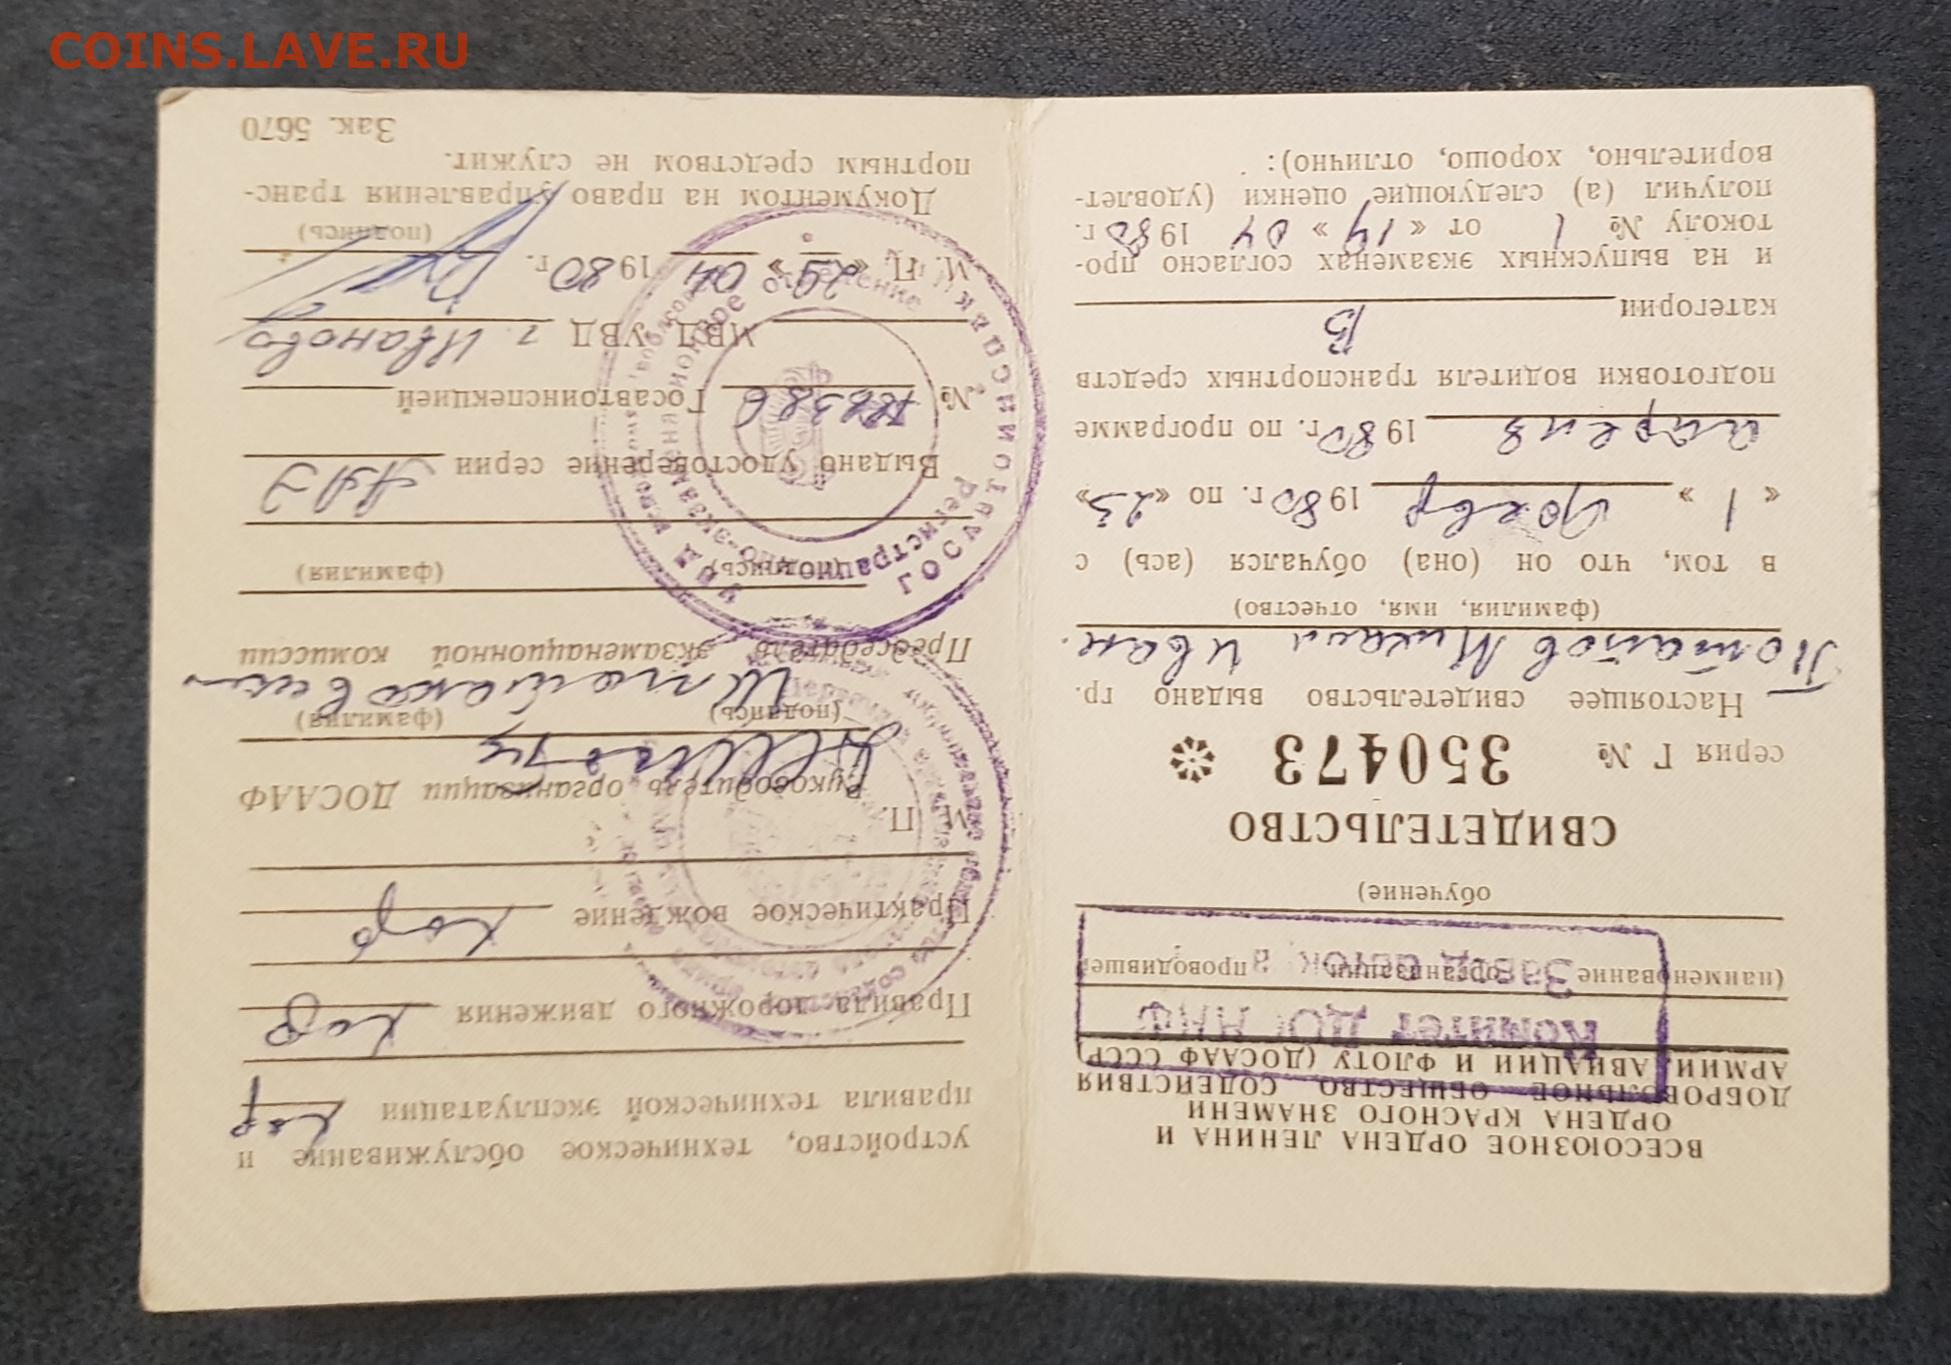 COINS.LAVE.RU
ВСЕСОЮЗНОЕ ОРДЕНА ЛЕНИНА И
ОРДЕНА КРАСНОГО ЗНАМЕНИ
ДОБРОВОЛЬНОЕ ОБЩЕСТВО СОДЕЙСТВИЯ
АРМИИ, АВИАЦИИ И ФЛОТУ (ДОСААФ СССР)
Комитет
(наименование организации, проводившей
Завод
обучение)
СВИДЕТЕЛЬСТВО
серия Г № 350473
Настоящее свидетельство выдано гр.
Потапов Михаил Иван.
(фамилия, имя, отчество)
в том, что он (она) обучался (ась) с
« 1 » январ 1980 г. по « 23 »
апреля 1980 г. по программе
подготовки водителя транспортных средств
категории В
и на выпускных экзаменах согласно про-
токолу № 1 от « 19 » 04 1980 г.
получил (а) следующие оценки (удовлет-
ворительно, хорошо, отлично):
устройство, техническое обслуживание и
правила технической эксплуатации хор
Правила дорожного движения хор
Практическое вождение хор
М. П.
Руководитель организации ДОСААФ
(подпись) (фамилия)
Председатель экзаменационной комиссии
(подпись) (фамилия)
Выдано удостоверение серии ААЭ
№ Госавтоинспекцией
МВД УВД г. Иваново
М. П. « 29 » 04 1980 г.
(подпись)
Документом на право управления транс-
портным средством не служит.
Зак. 5670
ГОСАВТОИНСПЕКЦИЯ
УВД
регистрационно-экзаменационное
отделение